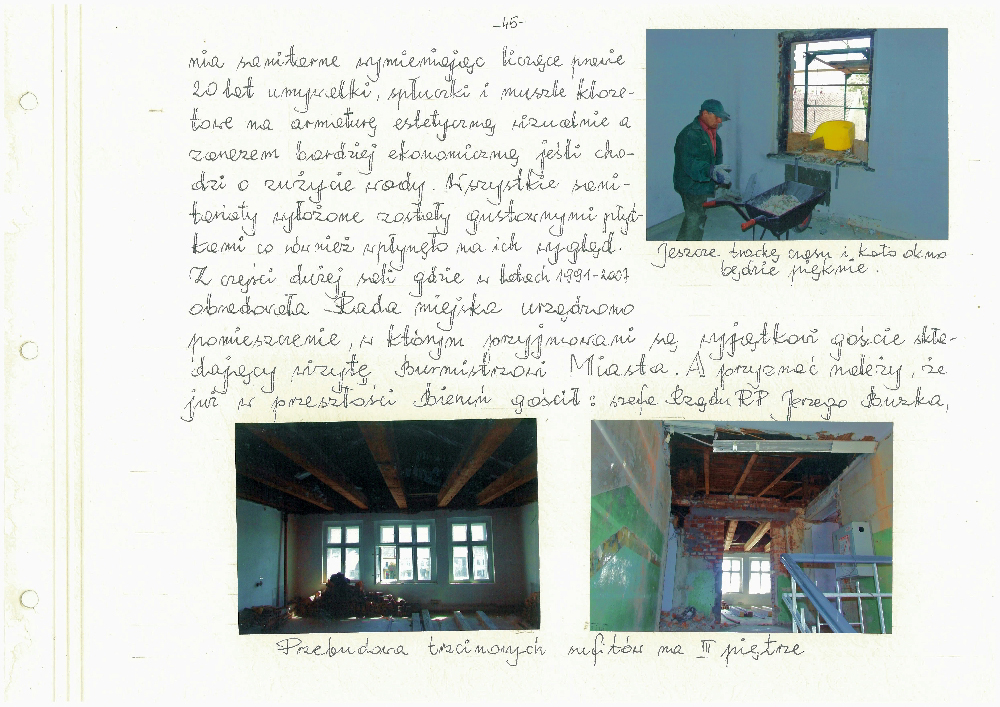 -45-
nia sanitarne wymieniając liczące prawie
20 lat umywalki, spłuczki i muszle kloze-
towe na armaturę estetyczną wizualnie a
zarazem bardziej ekonomiczną jeśli cho-
dzi o zużycie wody. Wszystkie sani-
tariaty wyłożone zostały gustownymi płyt-
kami co również wpłynęło na ich wygląd.
Z części dużej sali gdzie w latach 1991-2007
obradowała Rada miejska urządzono
pomieszczenie, w którym przyjmowani są wyjątkowi goście skła-
dający wizytę Burmistrzowi Miasta. A przyznać należy, że
już w przeszłości Bieruń gościł: szefa Rządu RP Jerzego Buzka,
Jeszcze trochę czasu i koło okna
będzie pięknie.
Przebudowa trzcinowych sufitów na III piętrze